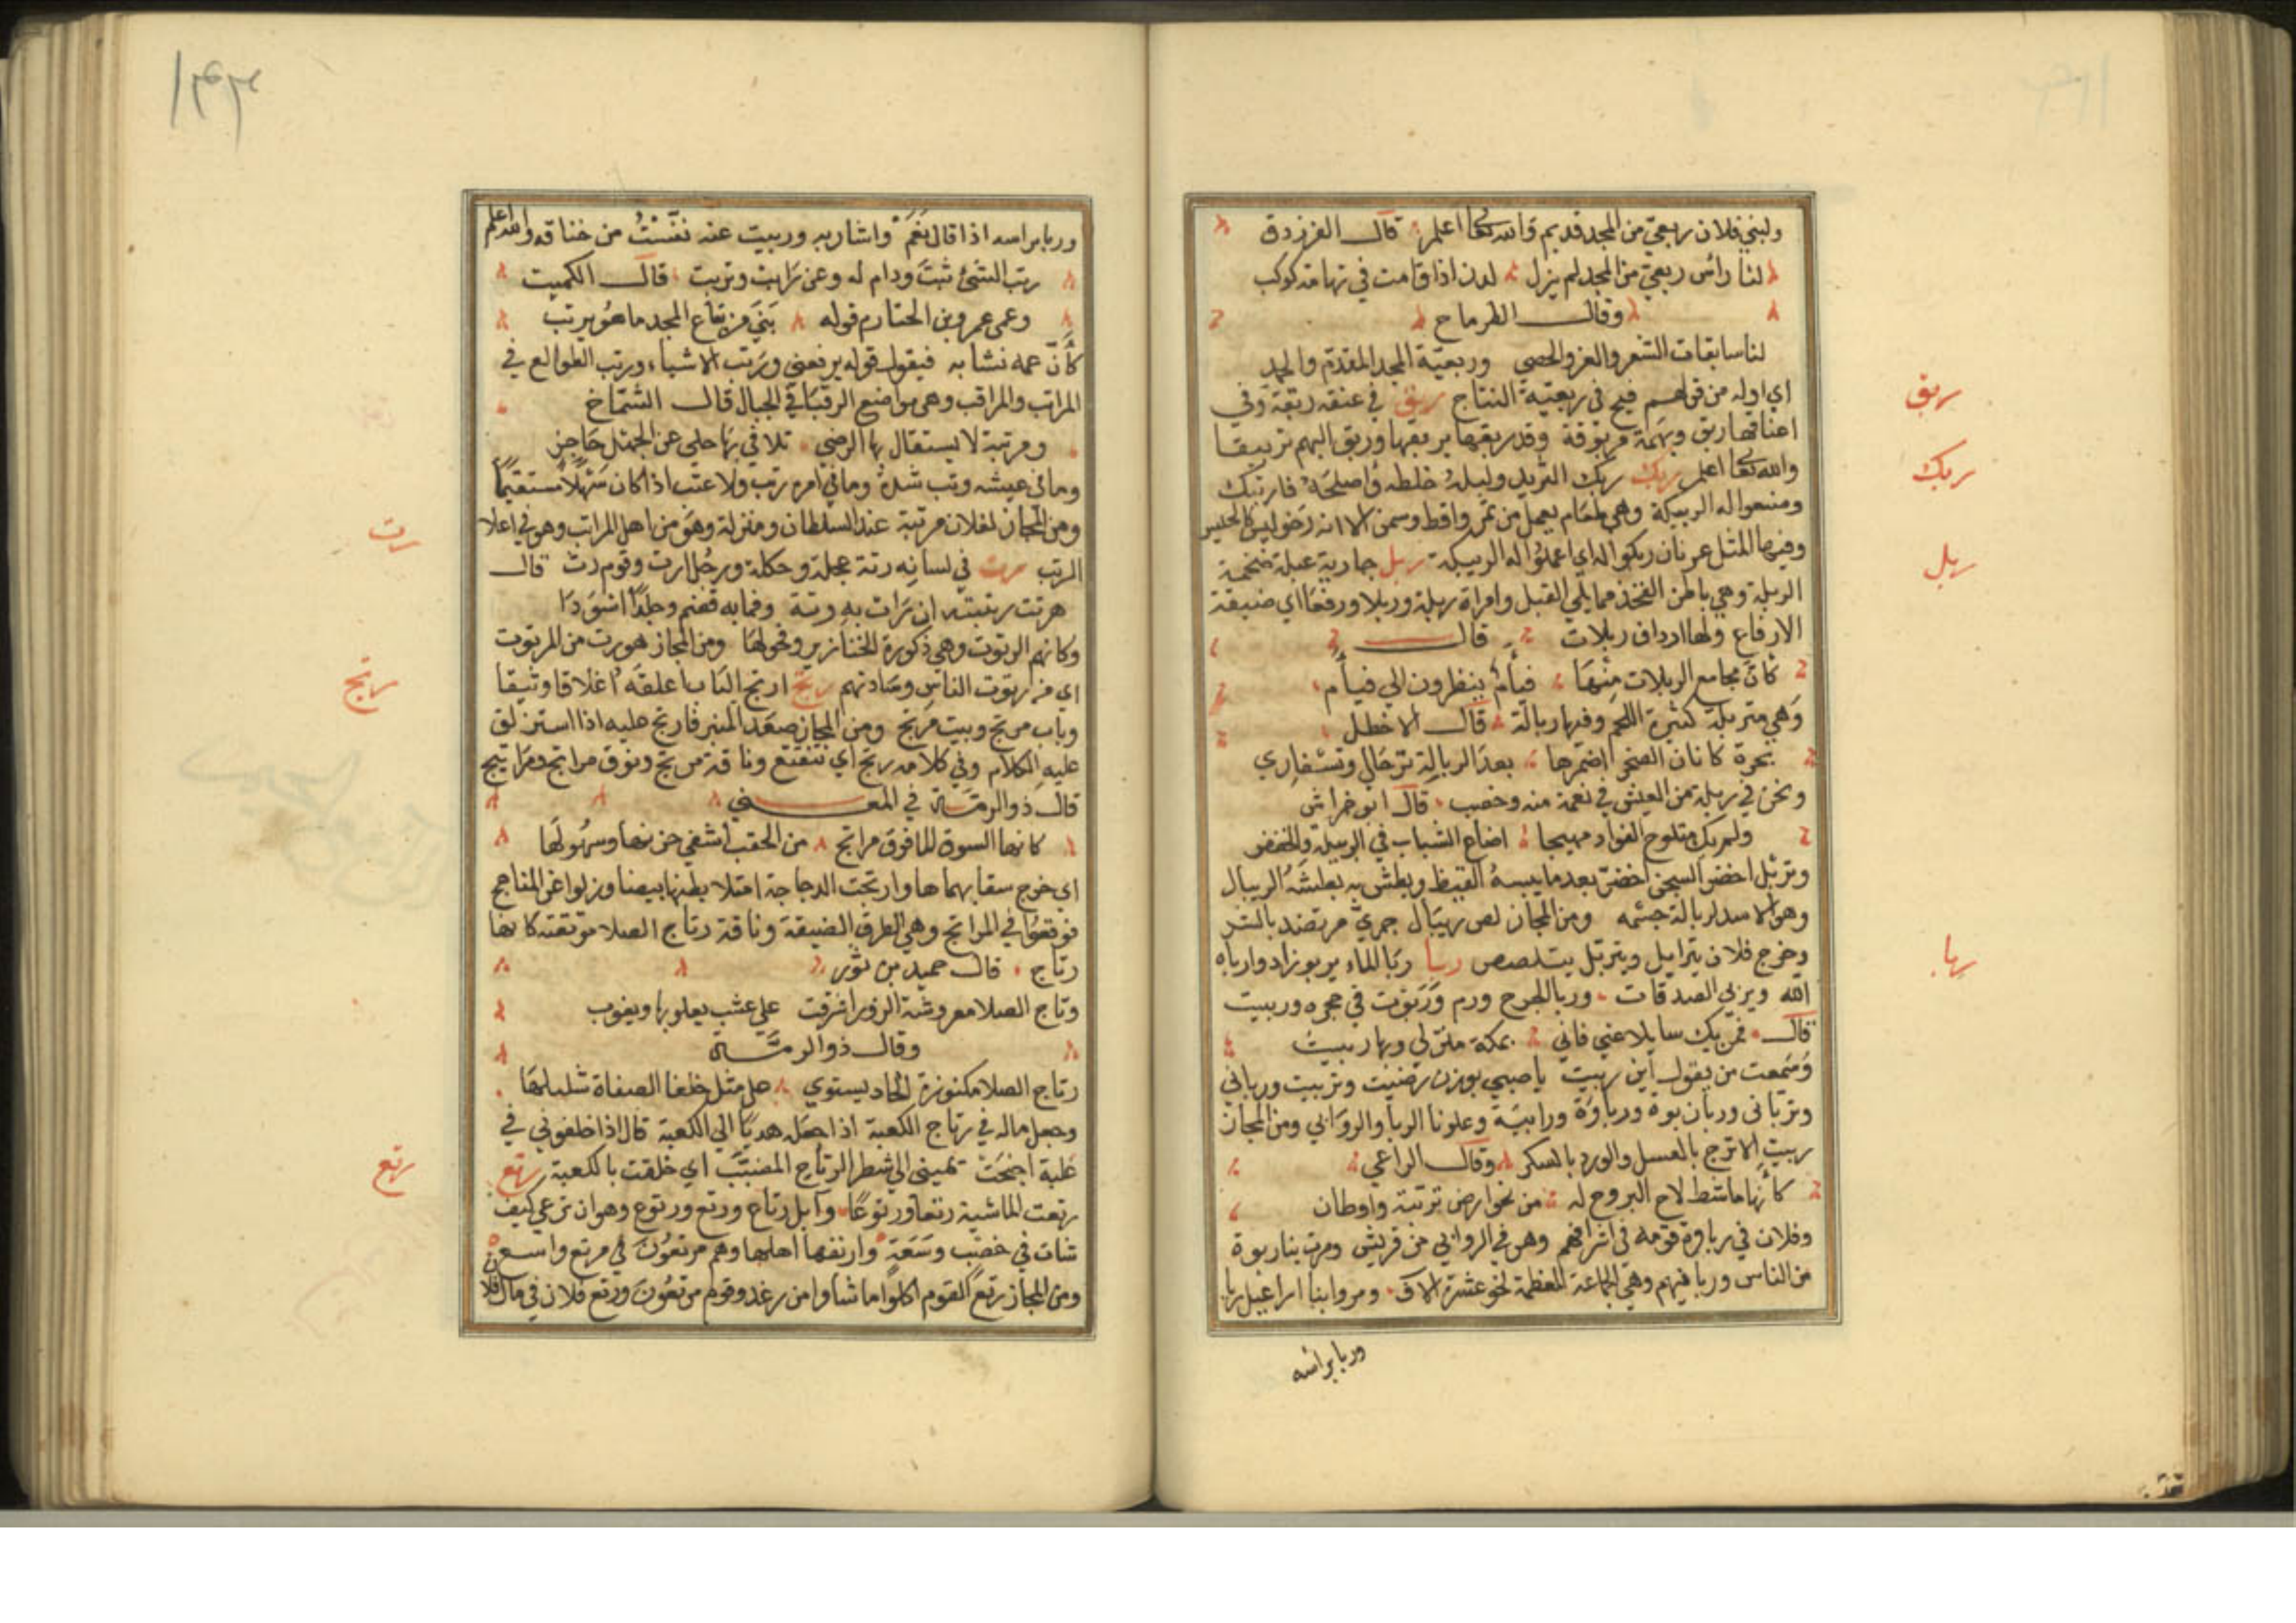 ولبني فلان ربعي من المجد قديم والله تعالى اعلم قال الفرزدق
لنا رأس ربعي من المجد لم يزل لدن اذا قامت في تهامة كوكب
وقال الطرماح
لنا سابقات الشعر والعز والحصى وربعية المجد المقدم والحمد
اي اوله من قولهم فيج في ربعية النتاج ربق في عنقه ربقة وفي
اعناقها ربق وبهمة مربوقة وقد ربقها يربقها وربق البهم تربيقا
والله تعالى اعلم ربك ربك الثريد ولبله خلطه وأصلحه فارتبك
ومنعوا له الربيكة وهي طعام يعمل من تمر واقط وسمن الا انه رخو ليس كالحيس
وفيها المثل غرثان ربكوا له اي اعملوا له الربيكة ربل جارية عبلة ضخمة
الربلة وهي باطن الفخذ مما يلي القبل وامراة ربلة وربلا ورفعا اي ضيقة
الارفاع ولها ارداف ربلات قال
كأن مجامع الربلات منها فيأم ينظرون الي فيأم
وهي متربلة كثيرة اللحم وفيها ربالة قال الاخطل
بحرة كاتان الضحل اضمرها بعد الربالة ترحالي وتسفاري
ونحن في ربلة من العيش في نعمة منه وخصب قال ابو خراش
ولم يك مثلوج الفواد مهيجا اضاع الشباب في الربيلة والخفض
وتربل اخضر الشجر اخضر بعد ما يبسه القيظ وبطش به بطشة الريبال
وهو الاسد لربالة جسمه ومن المجاز لص ريبال جمري مرتصد بالشر
وخرج فلان يترابل ويتربل يتلصص ربا ربا الماء يربو زاد وارباه
الله ويربي الصدقات وربا الجرح ورم وربوت في حجره وربيت
قال فمن يك سايلا عني فاني بمكة منزلي وبها ربيت
وسمعت من يقول اين ربيت يا صبي بوزن رضيت وتربيت ورباني
وترباني وربان بوة ورباوة ورابية وعلونا الربا والروابي ومن المجاز
ربيت الاترج بالعسل والورد بالسكر وقال الراعي
كأنها ماشط لاح البروح له من نحو ارض تربته واوطان
وفلان في رباوة قومه في اشرافهم وهو في الروابي من قريش ومرت بنا ربوة
من الناس وربا فيهم وهي الجماعة العظمة نحو عشرة الاف ومروا بنا اراعيل ربا
وربا براسه
ربق
ربك
ربل
ربا
١٤٣
وربا براسه اذا قال نعم واشار به وربيت عنه نفست من خناقه والله اعلم
رتب الشئ ثبت ودام له وعز راتب وترتب قال الكميت
وعمي عمرو بن الخثارم قوله بني من يفاع المجد ما هو يرتب
كأن عمه نشا به فيقول قوله يرفعني ورتب الاشياء ورتب الطوالع في
المراتب والمراقب وهي مواضع الرقبا في الجبال قال الشماخ
ومرتبة لا يستقال بها الرضي تلافي بها حلمي عن الجهل حاجز
وما في عيشه رتب شدة وما في امره رتب ولا عتب اذا كان سهلا مستقيما
ومن المجاز لفلان مرتبة عند السلطان ومنزلة وهو من اهل المراتب وهو في اعلا
الرتب رت في لسانه رتة عجلة وحكلة ورجل ارت وقوم رت قال
هرتت رتبته ان رات به رتة وفما به قضم وجلدا اسودا
وكانهم الرتوت وهي ذكورة الخنازير وفحولها ومن المجاز هو رت من الرتوت
اي من رتوت الناس وساداتهم رتج ارتج الباب اغلقه اغلاقا وثيقا
وباب مرتج وبيت مرتج ومن المجاز صعد المنبر فارتج عليه اذا استزلق
عليه الكلام وفي كلامه رتج اي تتعتع وناقة مرتج ونوق مراتج ومراتيج
قال ذو الرمة في المعنى
كانها السود للما فوق مراتج من الحقب اشفي حزنها وسهولها
اي خرج سفا بهماها وارتجت الدجاجة امتلا بطنها بيضا وزلوا عن المناهج
فوقعوا في المراتج وهي الطرق الضيقة وناقة رتاج الصلا موثقته كانها
رتاج قال حميد بن ثور
رتاج الصلا معروشة الزور اشرقت علي عشب يعلو بها ويغوب
وقال ذو الرمة
رتاج الصلا مكنوزة الحاد يستوي على مثل خلقا الصفاة شليلها
وجعل ماله في رتاج الكعبة اذا جعله هديا الي الكعبة قال اذا اخلفوني في
علية اجنحت يميني الي شطر الرتاج المضبب اي خلفت بالكعبة رتع
رتعت الماشية رتعا ورتوعا وابل رتاع ورتع ورتوع وهو ان ترعي كيف
شات في خصب وسعة وارتعها اهلها وهم مرتعون في مرتع واسع
ومن المجاز رتع القوم اكلوا ما شاوا من رغد وقوم مرتعون ورتع فلان في مال فلان
رت
رتج
رتع